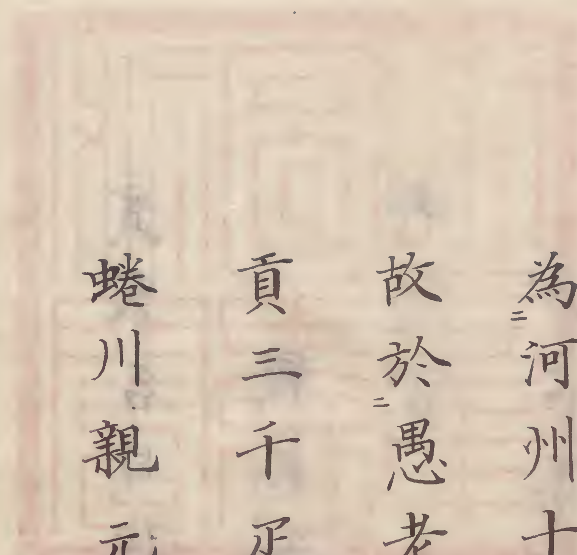 為二河州十
故於二愚老
貢三千疋
蜷川親元